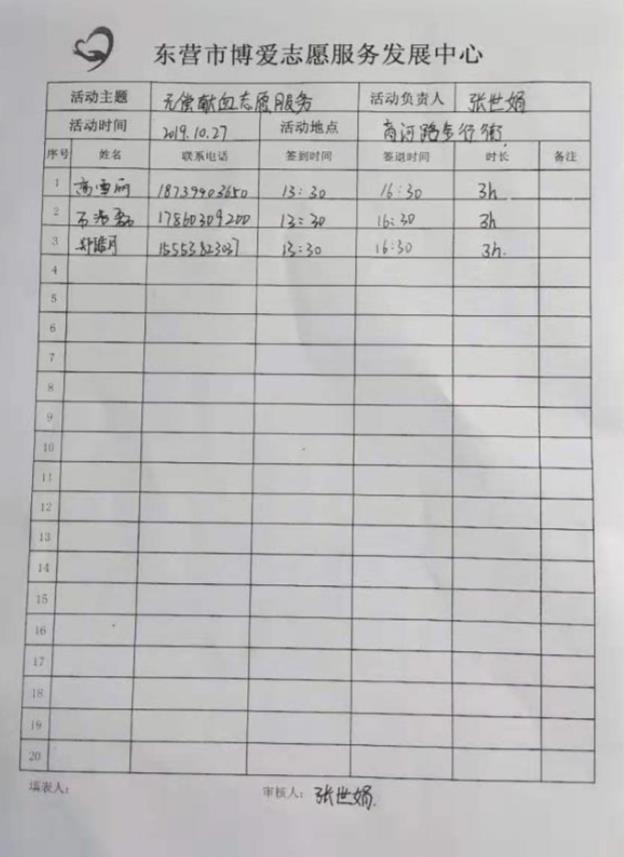 东营市博爱志愿服务发展中心
活动主题 无偿献血志愿服务 活动负责人 张世娟
活动时间 2019.10.27 活动地点 商河路步行街
序号 姓名 联系电话 签到时间 签退时间 时长 备注
1 高雪丽 18739903650 13:30 16:30 3h
2 17860309200 13:30 16:30 3h
3 15553823037 13:30 16:30 3h.
4
5
6
7
8
9
10
11
12
13
14
15
16
17
18
19
20
填表人: 审核人: 张世娟.